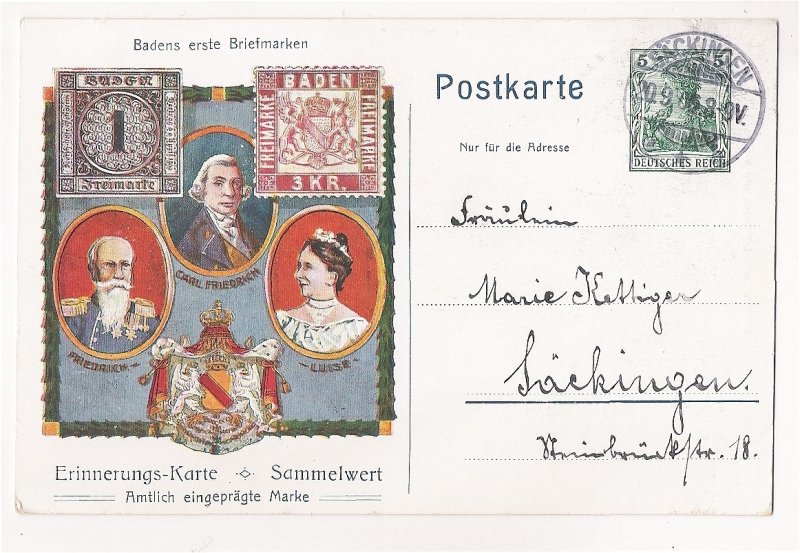 Badens erste Briefmarken
BADEN
1
Freimarke
BADEN
FREIMARKE
FREIMARKE
3 KR.
CARL FRIEDRICH
FRIEDRICH-
-LUISE-
Erinnerungs-Karte Sammelwert
Amtlich eingeprägte Marke
Postkarte
5 5
DEUTSCHES REICH
SÄCKINGEN
8-9V.
Nur für die Adresse
Fräulein
Marie Kettiger
Säckingen.
Steinbrückstr. 18.